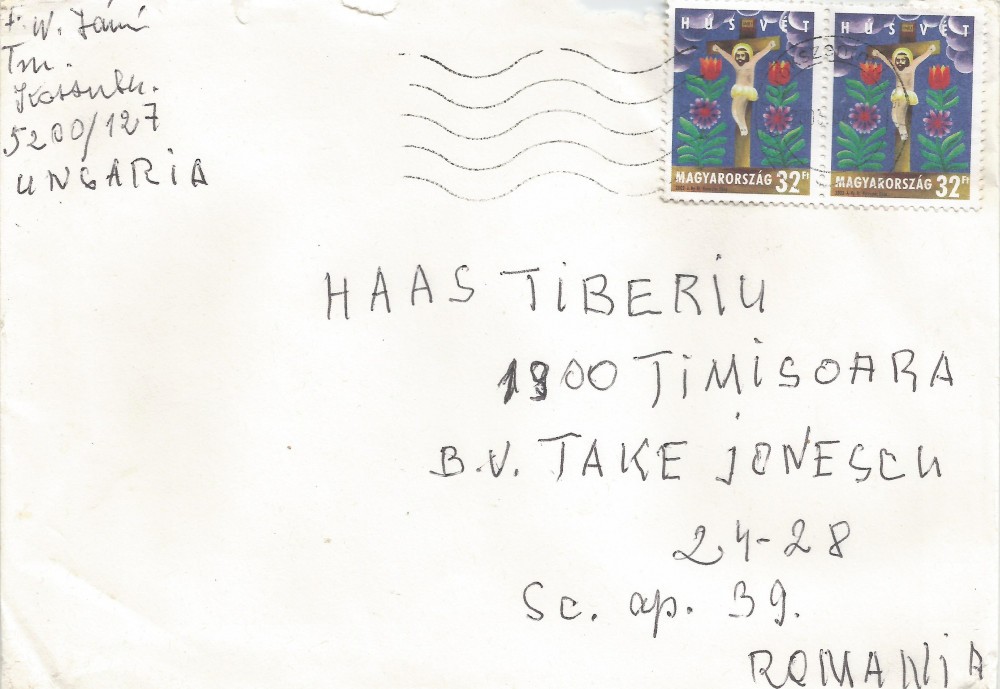 F. W. Jánó
Tm.
Kossuth u.
5200/127
UNGARIA
HÚSVÉT
MAGYARORSZÁG 32Ft
HÚSVÉT
MAGYARORSZÁG 32Ft
HAAS TIBERIU
1900 TIMISOARA
B.V. TAKE JONESCU
24-28
Sc. ap. 39.
ROMANIA